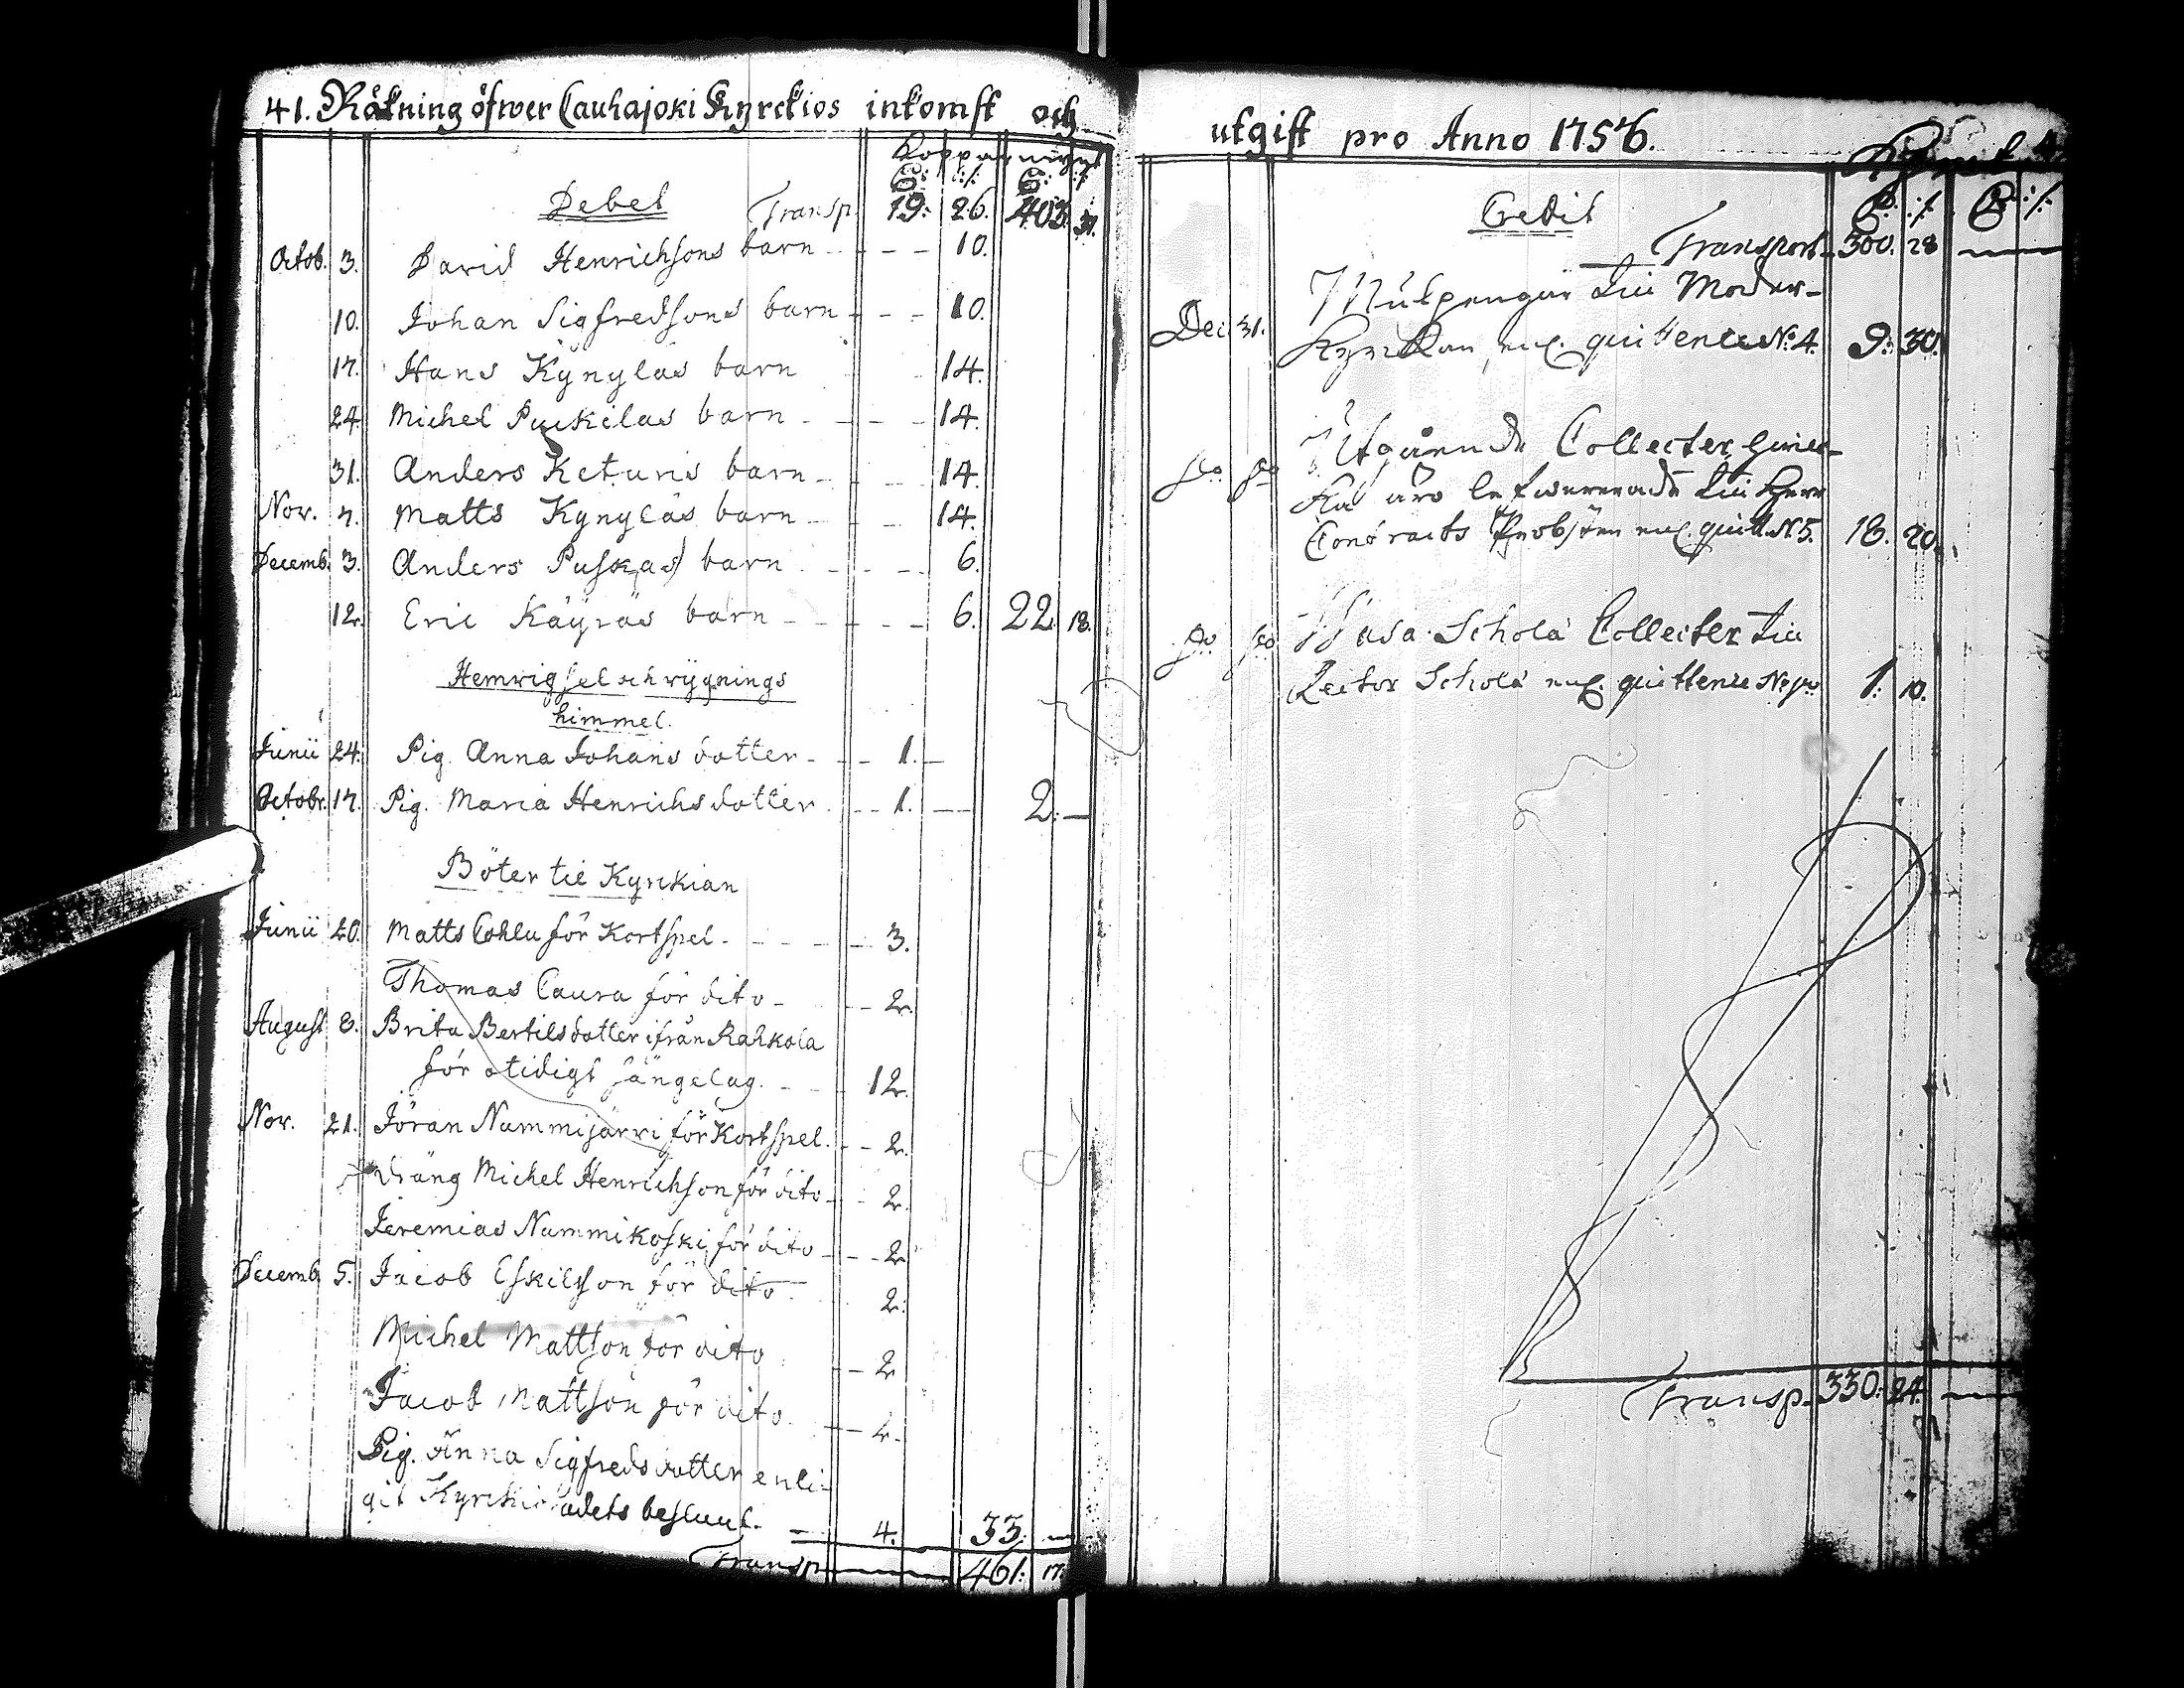 41. Räkning öfwer Cauhajoki Kyrckios inkomst och
Koppar mynt
Debet Transp. 19: 26. 403. 31.
Octob. 3. David Henrichsons barn 10.
10. Johan Sigfredsons barn 10.
17. Hans Kynyläs barn 14.
24. Michel Puckilas barn 14.
31. Anders Keturis barn 14.
Nov. 7. Matts Kynyläs barn 14.
Decemb. 3. Anders Puskas barn 6.
12. Eric Käyräs barn 6. 22. 18.
Hemwigsel och wygnings
himmel.
Junii 24. Pig. Anna Johans dotter 1. —
Octobr. 17. Pig. Maria Henrichs dotter 1. — 2. —
Böter til Kyrckian
Junii 20. Matts Cohlu för Kortspel 3.
Thomas Caura för dito 2.
August 8. Brita Bertilsdotter ifrån Rahkola
för otidigt sängelag. 12.
Nov. 21. Jöran Nummijärvi för Kortspel 2.
Dräng Michel Henrichson för dito 2.
Jeremias Nummikoski för dito 2.
Decemb. 5. Jacob Eskilsson för dito 2.
Michel Mattson för dito 2.
Jacob Mattson för dito 2.
Pig. Anna Sigfredsdotter enli-
git Kyrckio rådets besluut. 4. 33. —
Transp. 461: 17.
utgift pro Anno 1756.
Credit
Transport 300. 28 —
Mulpengar til Moder-
Dec. 31. Kyrckan, enl. quittence No. 4. 9: 30.
Utgående Collecter, hwil-
do do ka äro lefwererade til Herr
Contracts Probsten enl. quitt. N 5. 18. 20.
do do Wasa Schola Collecter til
Rector Schola enl. quittence No do 1: 10.
Transp. 330: 24. —